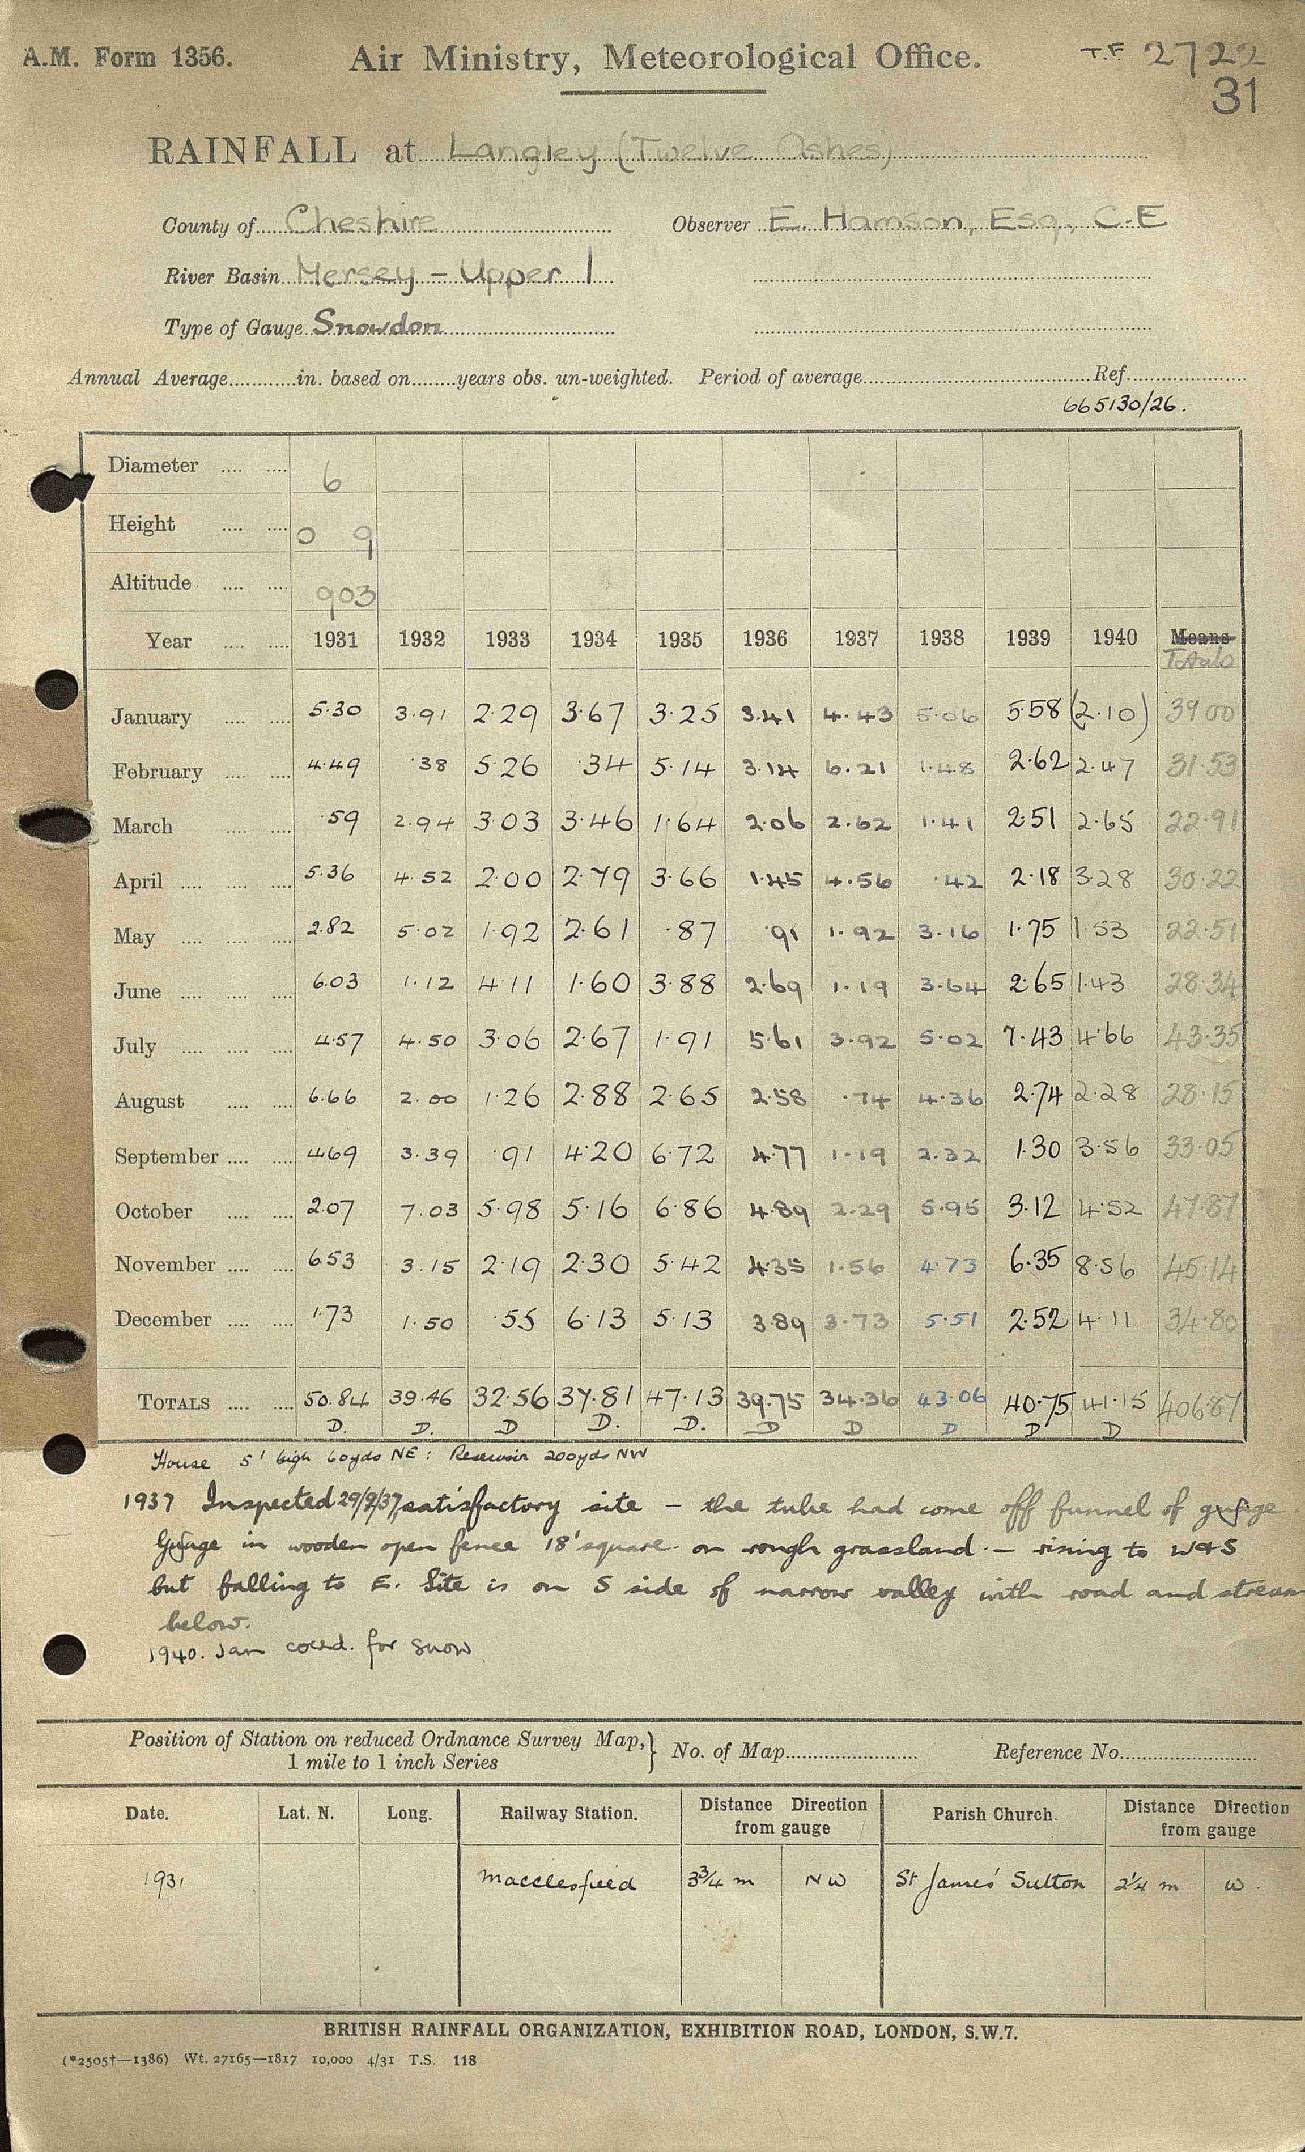 A.M. Form 1356. Air Ministry, Meteorological Office. T.F 2722
31
RAINFALL at Langley (Twelve Ashes)
County of Cheshire Observer E. Hamson, Esq., C.E
River Basin Mersey - Upper 1
Type of Gauge Snowdon
Annual Average in. based on years obs. un-weighted. Period of average Ref.
665130/26.
Diameter 6
Height 0 9
Altitude 903
Year 1931 1932 1933 1934 1935 1936 1937 1938 1939 1940 Means
Totals
January 5.30 3.91 2.29 3.67 3.25 3.41 4.43 5.06 5.58 (2.10) 39.00
February 4.49 .38 5.26 .34 5.14 3.14 6.21 1.48 2.62 2.47 31.53
March .59 2.94 3.03 3.46 1.64 2.06 2.62 1.41 2.51 2.65 22.91
April 5.36 4.52 2.00 2.79 3.66 1.45 4.56 .42 2.18 3.28 30.22
May 2.82 5.02 1.92 2.61 .87 .91 1.92 3.16 1.75 1.53 22.51
June 6.03 1.12 4.11 1.60 3.88 2.69 1.19 3.64 2.65 1.43 28.34
July 4.57 4.50 3.06 2.67 1.91 5.61 3.92 5.02 7.43 4.66 43.35
August 6.66 2.00 1.26 2.88 2.65 2.58 .74 4.36 2.74 2.28 28.15
September 4.69 3.39 .91 4.20 6.72 4.77 1.19 2.32 1.30 3.56 33.05
October 2.07 7.03 5.98 5.16 6.86 4.89 2.29 5.95 3.12 4.52 47.87
November 6.53 3.15 2.19 2.30 5.42 4.35 1.56 4.73 6.35 8.56 45.14
December 1.73 1.50 .55 6.13 5.13 3.89 3.73 5.51 2.52 4.11 34.80
TOTALS 50.84 39.46 32.56 37.81 47.13 39.75 34.36 43.06 40.75 41.15 406.87
D. D. D D. D. D D D D D
House 5' high 60yds NE: Reservoir 200yds NW
1937 Inspected 29/9/37, satisfactory site - the tube had come off funnel of gauge
Gauge in wooden open fence 18' square on rough grassland - rising to W & S
but falling to E. Site is on S side of narrow valley with road and stream
below.
1940. Jan coced. for snow
Position of Station on reduced Ordnance Survey Map, } No. of Map Reference No.
1 mile to 1 inch Series
Date. Lat. N. Long. Railway Station. Distance Direction from gauge Parish Church. Distance Direction from gauge
1931 Macclesfield 3¾ m NW St James' Sutton 2¼ m W.
BRITISH RAINFALL ORGANIZATION, EXHIBITION ROAD, LONDON, S.W.7.
(*2505†—1386) Wt. 27165—1817 10,000 4/31 T.S. 118